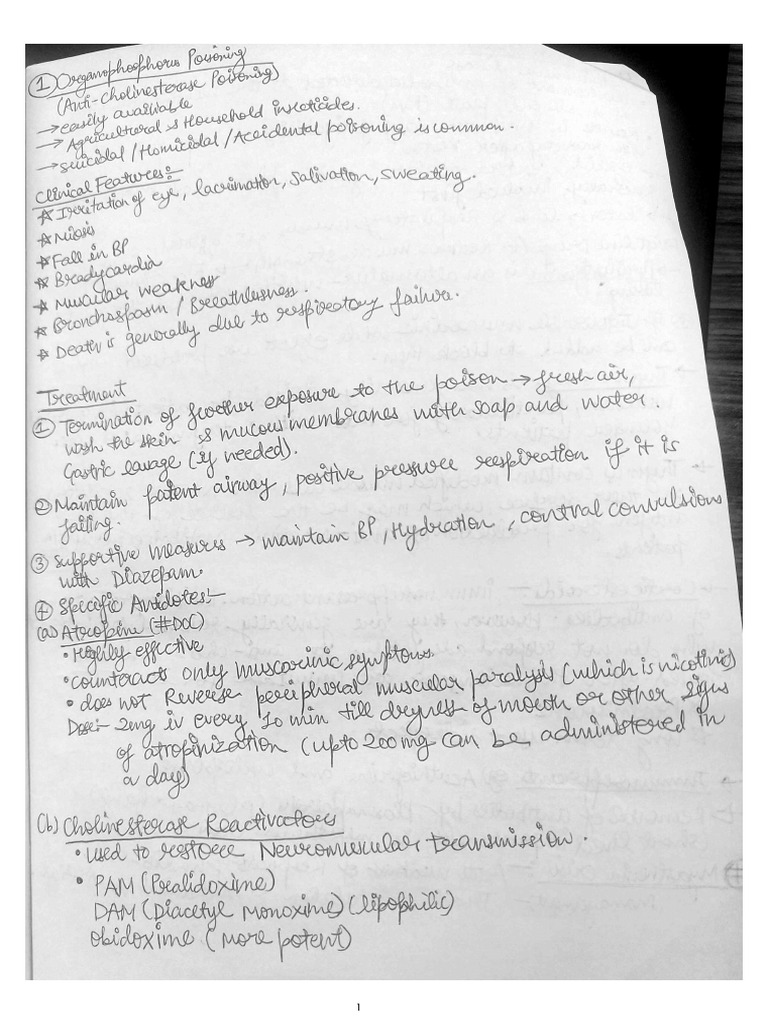 ① Organophosphorus Poisoning
(Anti-cholinesterase Poisoning)
→ easily available
→ Agricultural & Household insecticides.
→ suicidal / Homicidal / Accidental poisoning is common.
Clinical Features:-
* Irritation of eye, lacrimation, salivation, sweating.
* Miosis
* Fall in BP
* Bradycardia
* Muscular weakness
* Bronchospasm / Breathlessness.
* Death is generally due to respiratory failure.
Treatment
① Termination of further exposure to the poison → fresh air,
wash the skin & mucous membranes with soap and water.
Gastric lavage (if needed).
② Maintain patent airway, positive pressure respiration if it is
failing.
③ Supportive measures → maintain BP, Hydration, control convulsions
with Diazepam.
④ Specific Antidotes:-
(a) Atropine (#DOC)
• Highly effective
• counteracts only muscarinic symptoms
• does not Reverse peripheral muscular paralysis (which is nicotinic)
Dose:- 2mg iv every 10 min till dryness of mouth or other signs
of atropinization (upto 200mg can be administered in
a day)
(b) Cholinesterase Reactivators
• used to restore Neuromuscular transmission.
• PAM (Pralidoxime)
DAM (Diacetyl Monoxime) (lipophilic)
Obidoxime (More potent)
1